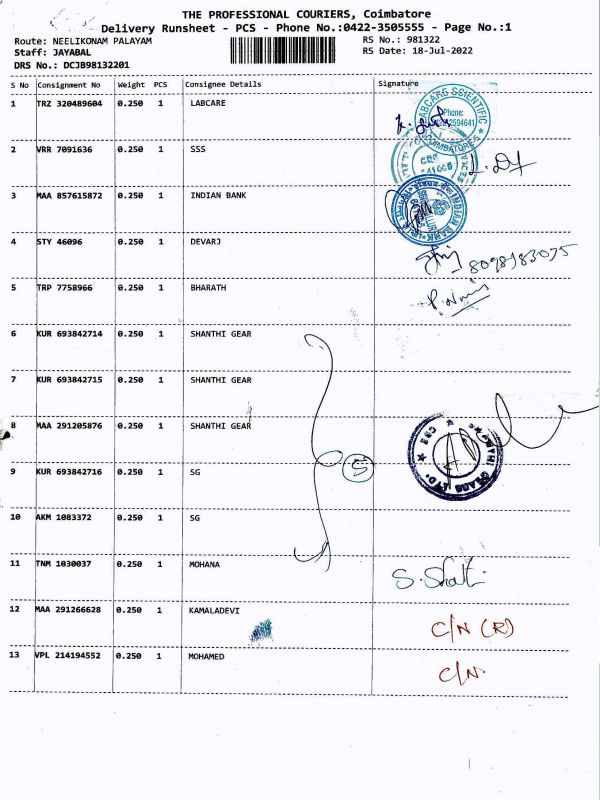 THE PROFESSIONAL COURIERS, Coimbatore
Delivery Runsheet - PCS - Phone No.:0422-3505555 - Page No.:1
Route: NEELIKONAM PALAYAM RS No.: 981322
Staff: JAYABAL RS Date: 18-Jul-2022
DRS No.: DCJB98132201
S No Consignment No Weight PCS Consignee Details Signature
1 TRZ 320489604 0.250 1 LABCARE
2 VRR 7091636 0.250 1 SSS
3 MAA 857615872 0.250 1 INDIAN BANK
4 STY 46096 0.250 1 DEVARJ
5 TRP 7758966 0.250 1 BHARATH
6 KUR 693842714 0.250 1 SHANTHI GEAR
7 KUR 693842715 0.250 1 SHANTHI GEAR
8 MAA 291205876 0.250 1 SHANTHI GEAR
9 KUR 693842716 0.250 1 SG
5
10 AKM 1083372 0.250 1 SG
11 TNM 1030037 0.250 1 MOHANA
12 MAA 291266628 0.250 1 KAMALADEVI C/N (R)
13 VPL 214194552 0.250 1 MOHAMED C/N